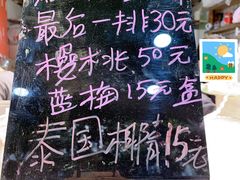 最后一排30元
樱桃50元
蓝梅15元盒
泰国椰青15元
HAPPY